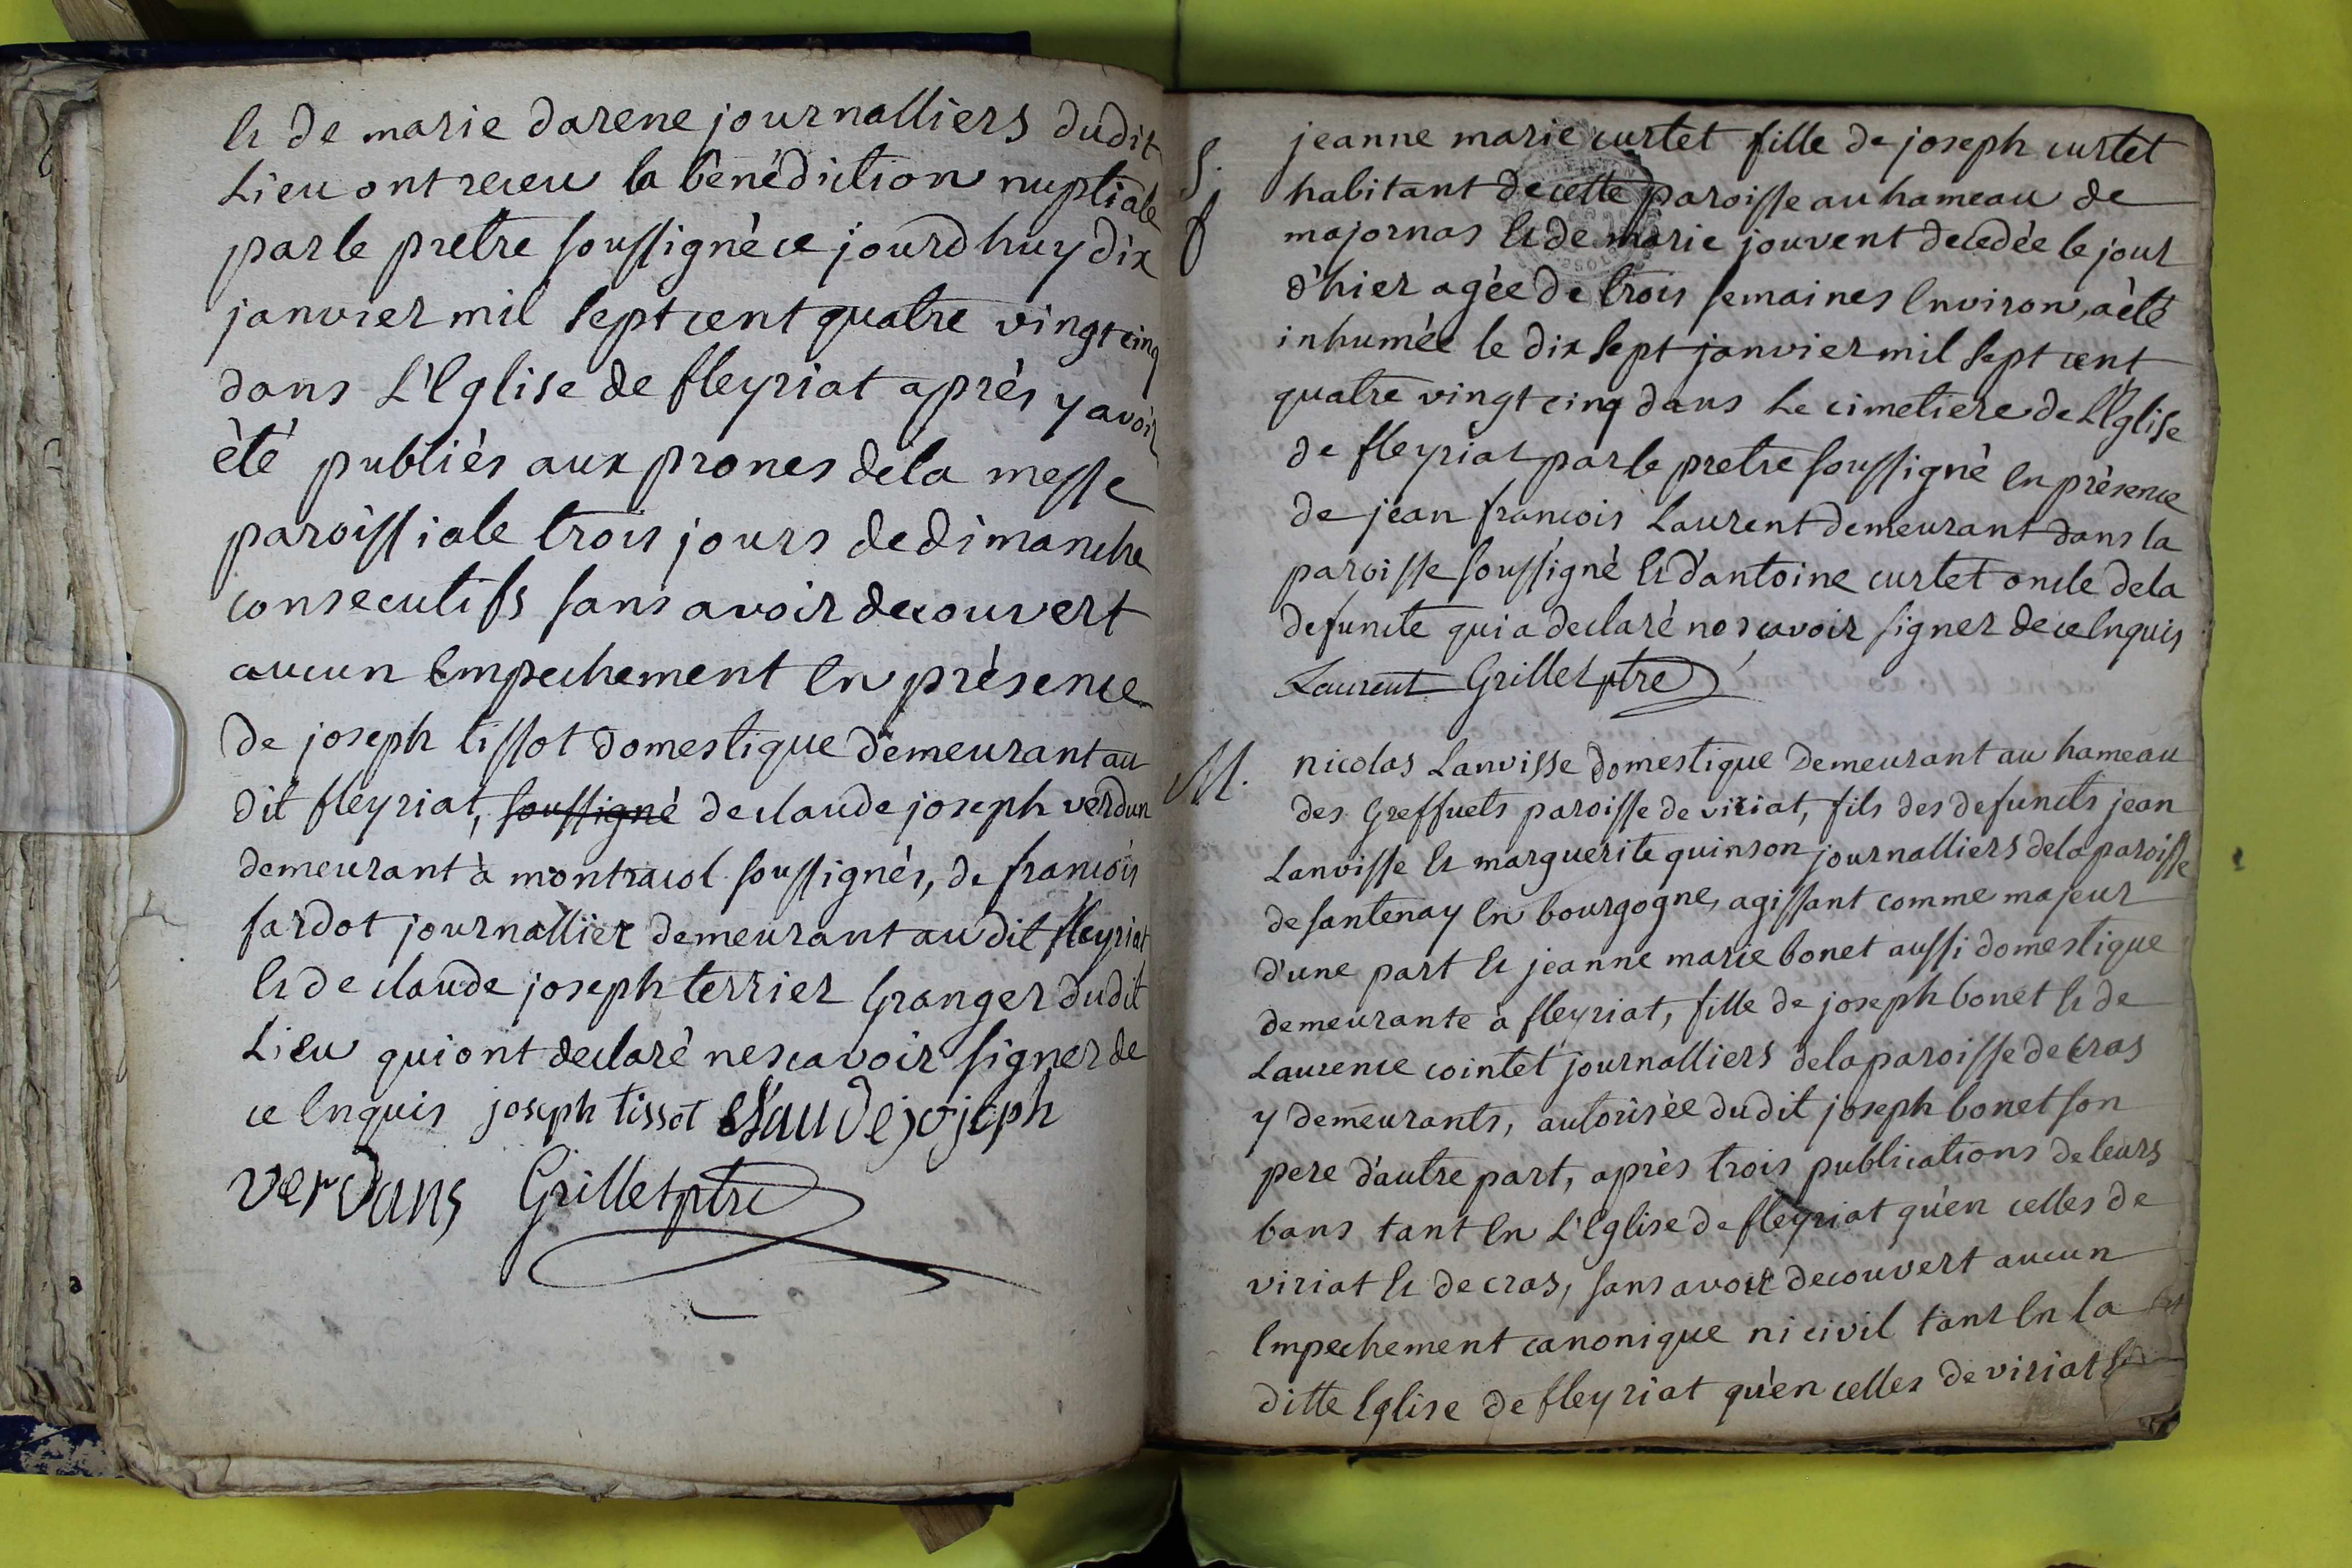 & de marie darene journalliers dudit
Lieu ont receu la bénédiction nuptiale
par le pretre soussigné ce jourdhuy dix
janvier mil sept cent quatre vingt cinq
dans L'Eglise de fleyriat après y avoir
èté publiés aux prones de la messe
paroissiale trois jours de dimanche
consecutifs sans avoir decouvert
aucun Empechement En présence
de joseph tissot domestique demeurant au
dit fleyriat, soussigné de claude joseph verdun
demeurant à montracol soussignés, de francois
sardot journallier demeurant au dit fleyriat
& de claude joseph terrier Granger dudit
Lieu qui ont declaré ne scavoir signer de
ce Enquis joseph tissot Claude joseph
verdans Grillet ptre
S.
jeanne marie curtet fille de joseph curtet
habitant de cette paroisse au hameau de
majornas & de marie jouvent decedée le jour
d'hier agée de trois semaines Environ, a èté
inhumée le dix sept janvier mil sept cent
quatre vingt cinq dans Le cimetiere de L'Eglise
de fleyriat par le pretre soussigné En présence
de jean francois Laurent demeurant dans la
paroisse soussigné & d'antoine curtet oncle de la
defuncte qui a declaré ne scavoir signer de ce Enquis
Laurent Grillet ptre
M.
nicolas Lanvisse domestique demeurant au hameau
des Greffuets paroisse de viriat, fils des defuncts jean
Lanvisse & marguerite quinson journalliers de la paroisse
de santenay En bourgogne, agissant comme majeur
d'une part & jeanne marie bonet aussi domestique
demeurante à fleyriat, fille de joseph bonet & de
Laurence cointet journalliers de la paroisse de cras
y demeurants, autorisée dudit joseph bonet son
pere d'autre part, après trois publications de leurs
bans tant En L'Eglise de fleyriat qu'en celles de
viriat & de cras, sans avoir decouvert aucun
Empechement canonique ni civil tant En la
ditte Eglise de fleyriat qu'en celles de viriat &